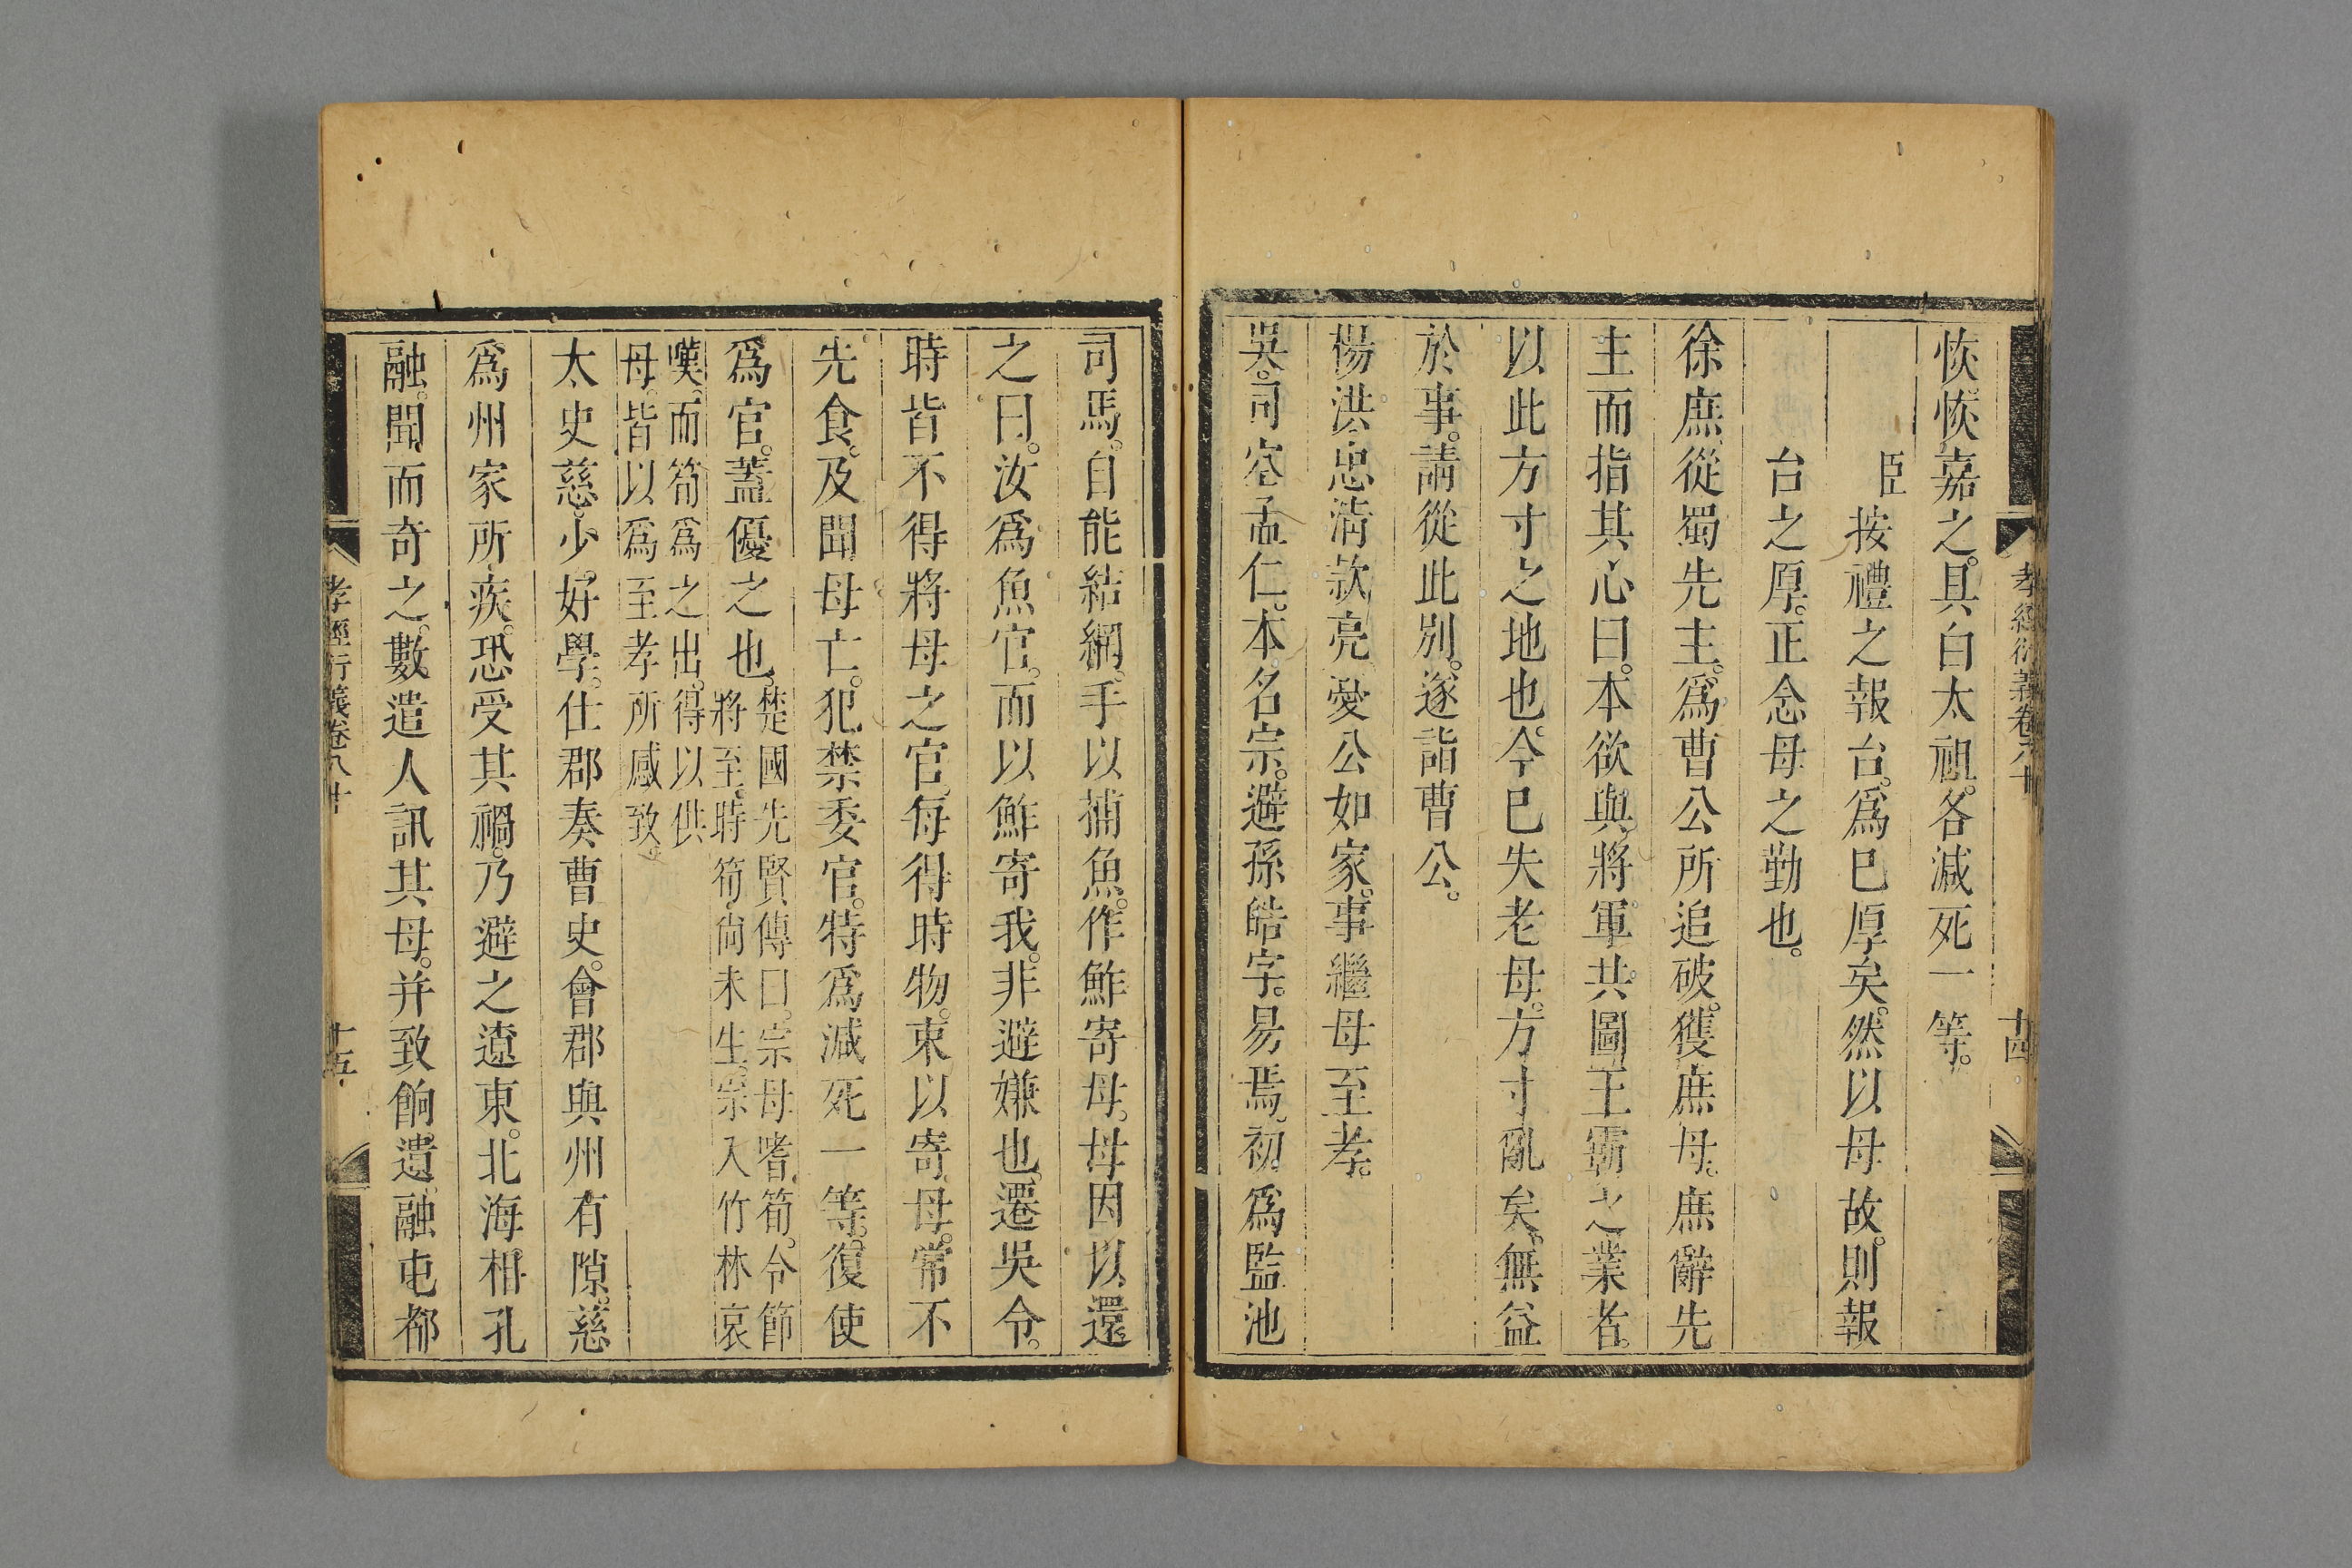 孝經衍義卷八十
十四
恢恢嘉之。具白太祖。各減死一等。
臣
按禮之報台。爲已厚矣。然以母故。則報
台之厚。正念母之勤也。
徐庶從蜀先主。爲曹公所追破。獲庶母。庶辭先
主而指其心曰。本欲與將軍共圖王霸之業者。
以此方寸之地也。今已失老母。方寸亂矣。無益
於事。請從此別。遂詣曹公。
楊洪忠淸款亮。憂公如家。事繼母至孝。
吳。司空孟仁。本名宗。避孫皓字。易焉。初爲監池
司馬。自能結網。手以捕魚。作鮓寄母。母因以還
之曰。汝爲魚官。而以鮓寄我。非避嫌也。遷吳令。
時皆不得將母之官。每得時物。東以寄母。常不
先食。及聞母亡。犯禁委官。特爲減死一等。復使
爲官。蓋優之也。
楚國先賢傳曰。宗母嗜筍。冬節
將至。時筍尚未生。宗入竹林哀
嘆。而筍爲之出。得以供
母。皆以爲至孝所感致。
太史慈。少好學。仕郡奏曹史。會郡與州有隙。慈
爲州家所疾。恐受其禍。乃避之遼東。北海相孔
融。聞而奇之。數遣人訊其母。并致餉遺。融屯都
孝經衍義卷八十
十五